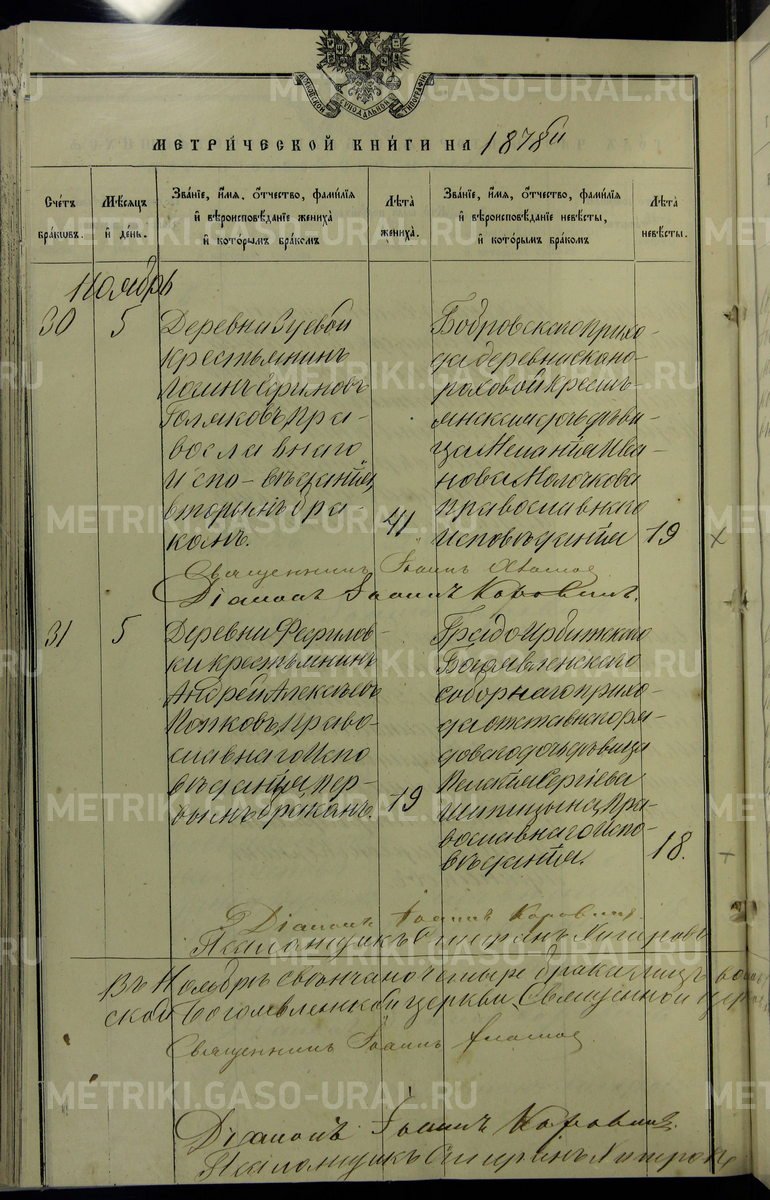 МОСКОВСКОЙ СѴНОДАЛЬНОЙ ТИПОГРАФІИ
МЕТРИ́ЧЕСКОЙ КНИ́ГИ НА 1878й
Сче́тъ бра́ковъ.
Мѣ́сяцъ и҆ де́нь.
Зва́нїе, и҆́мя, ѻ҆́тчество, фами́лїя
и҆ вѣроисповѣ́данїе жениха̀
и҆ кото́рымъ бра́комъ
Лѣ́та жениха̀.
Зва́нїе, и҆́мя, ѻ҆́тчество, фами́лїя
и҆ вѣроисповѣ́данїе невѣ́сты,
и҆ кото́рымъ бра́комъ
Лѣ́та невѣ́сты.
Ноябрь
30 5
Деревни Зуевой
крестьянинъ
Ефимовъ
Голяковъ, пра-
вославнаго
испо-вѣданія,
вторымъ бра-
комъ.
41
Бобровскаго прихо-
да деревни Скоро-
крестъ-
янская дочь дѣви-
ца Меланія Ива-
нова Молочкова
православнаго
исповѣданія
19
Священникъ Іоаннъ
Діаконъ Іоаннъ Коровинъ.
31 5
Деревни
ки крестьянинъ
Андрей Алексѣевъ
Попковъ, право-
славнаго испо
вѣданія, пер-
вымъ бракомъ.
19
Градо Ирбитскаго
Богоявленскаго
соборнаго прихо-
да отставнаго ря-
доваго дочь дѣвица
Пелагія Сергіева
пра-
вославнаго испо-
вѣданія.
18.
Діаконъ Іоаннъ Коровинъ.
Псаломщикъ
Въ Ноябрѣ свѣнчано четыре брака лицъ
ской Богоявленской церкви, Священной
Священникъ Іоаннъ
Діаконъ Іоаннъ Коровинъ.
Псаломщикъ
METRIKI.GASO-URAL.RU